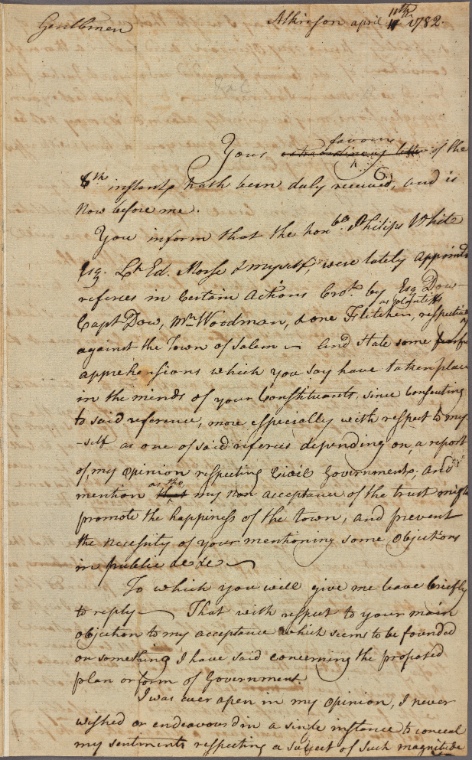 Gentlemen Atkinson april 11th 1782.
Your extraordinary letter favour of the
8th instant, hath been duly received, and is
Now before me.
You inform that the honble Philips White
Esq. Lt Ed. Morse & myself, were lately appointd
referees in Certain Actions Brot by Esq Dow
Capt Dow, Mr Woodman, & one Fletcher, as plantiffs respective
against the Town of Salem — And State some
apprehensions which you say have taken place
in the minds of your Constituants, since Consenting
to said reference, more especially with respect to my
-self as one of said referees depending on a report
of my opinion respecting Civil Government, And
mention that as the my non acceptance of the trust might
promote the happiness of the Town, and prevent
the necessity of your mentioning some objections
in a public &c &c —
To which you will give me leave briefly
to reply — That with respect to your main
objection to my acceptance which seems to be founded
on something I have said concerning the proposed
plan or form of Government.
I was ever open in my opinion, I never
wished or endeavourd in a single instance to conceal
my sentiments respecting a subject of such magnitude